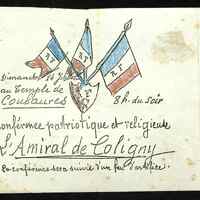 RF
RF
RF
Dimanche 14
au Temple de
COUBAURES
8h. du soir
Conférence patriotique et religieuse
L'Amiral de Coligny
La conférence sera suivie d'un feu d'artifice.